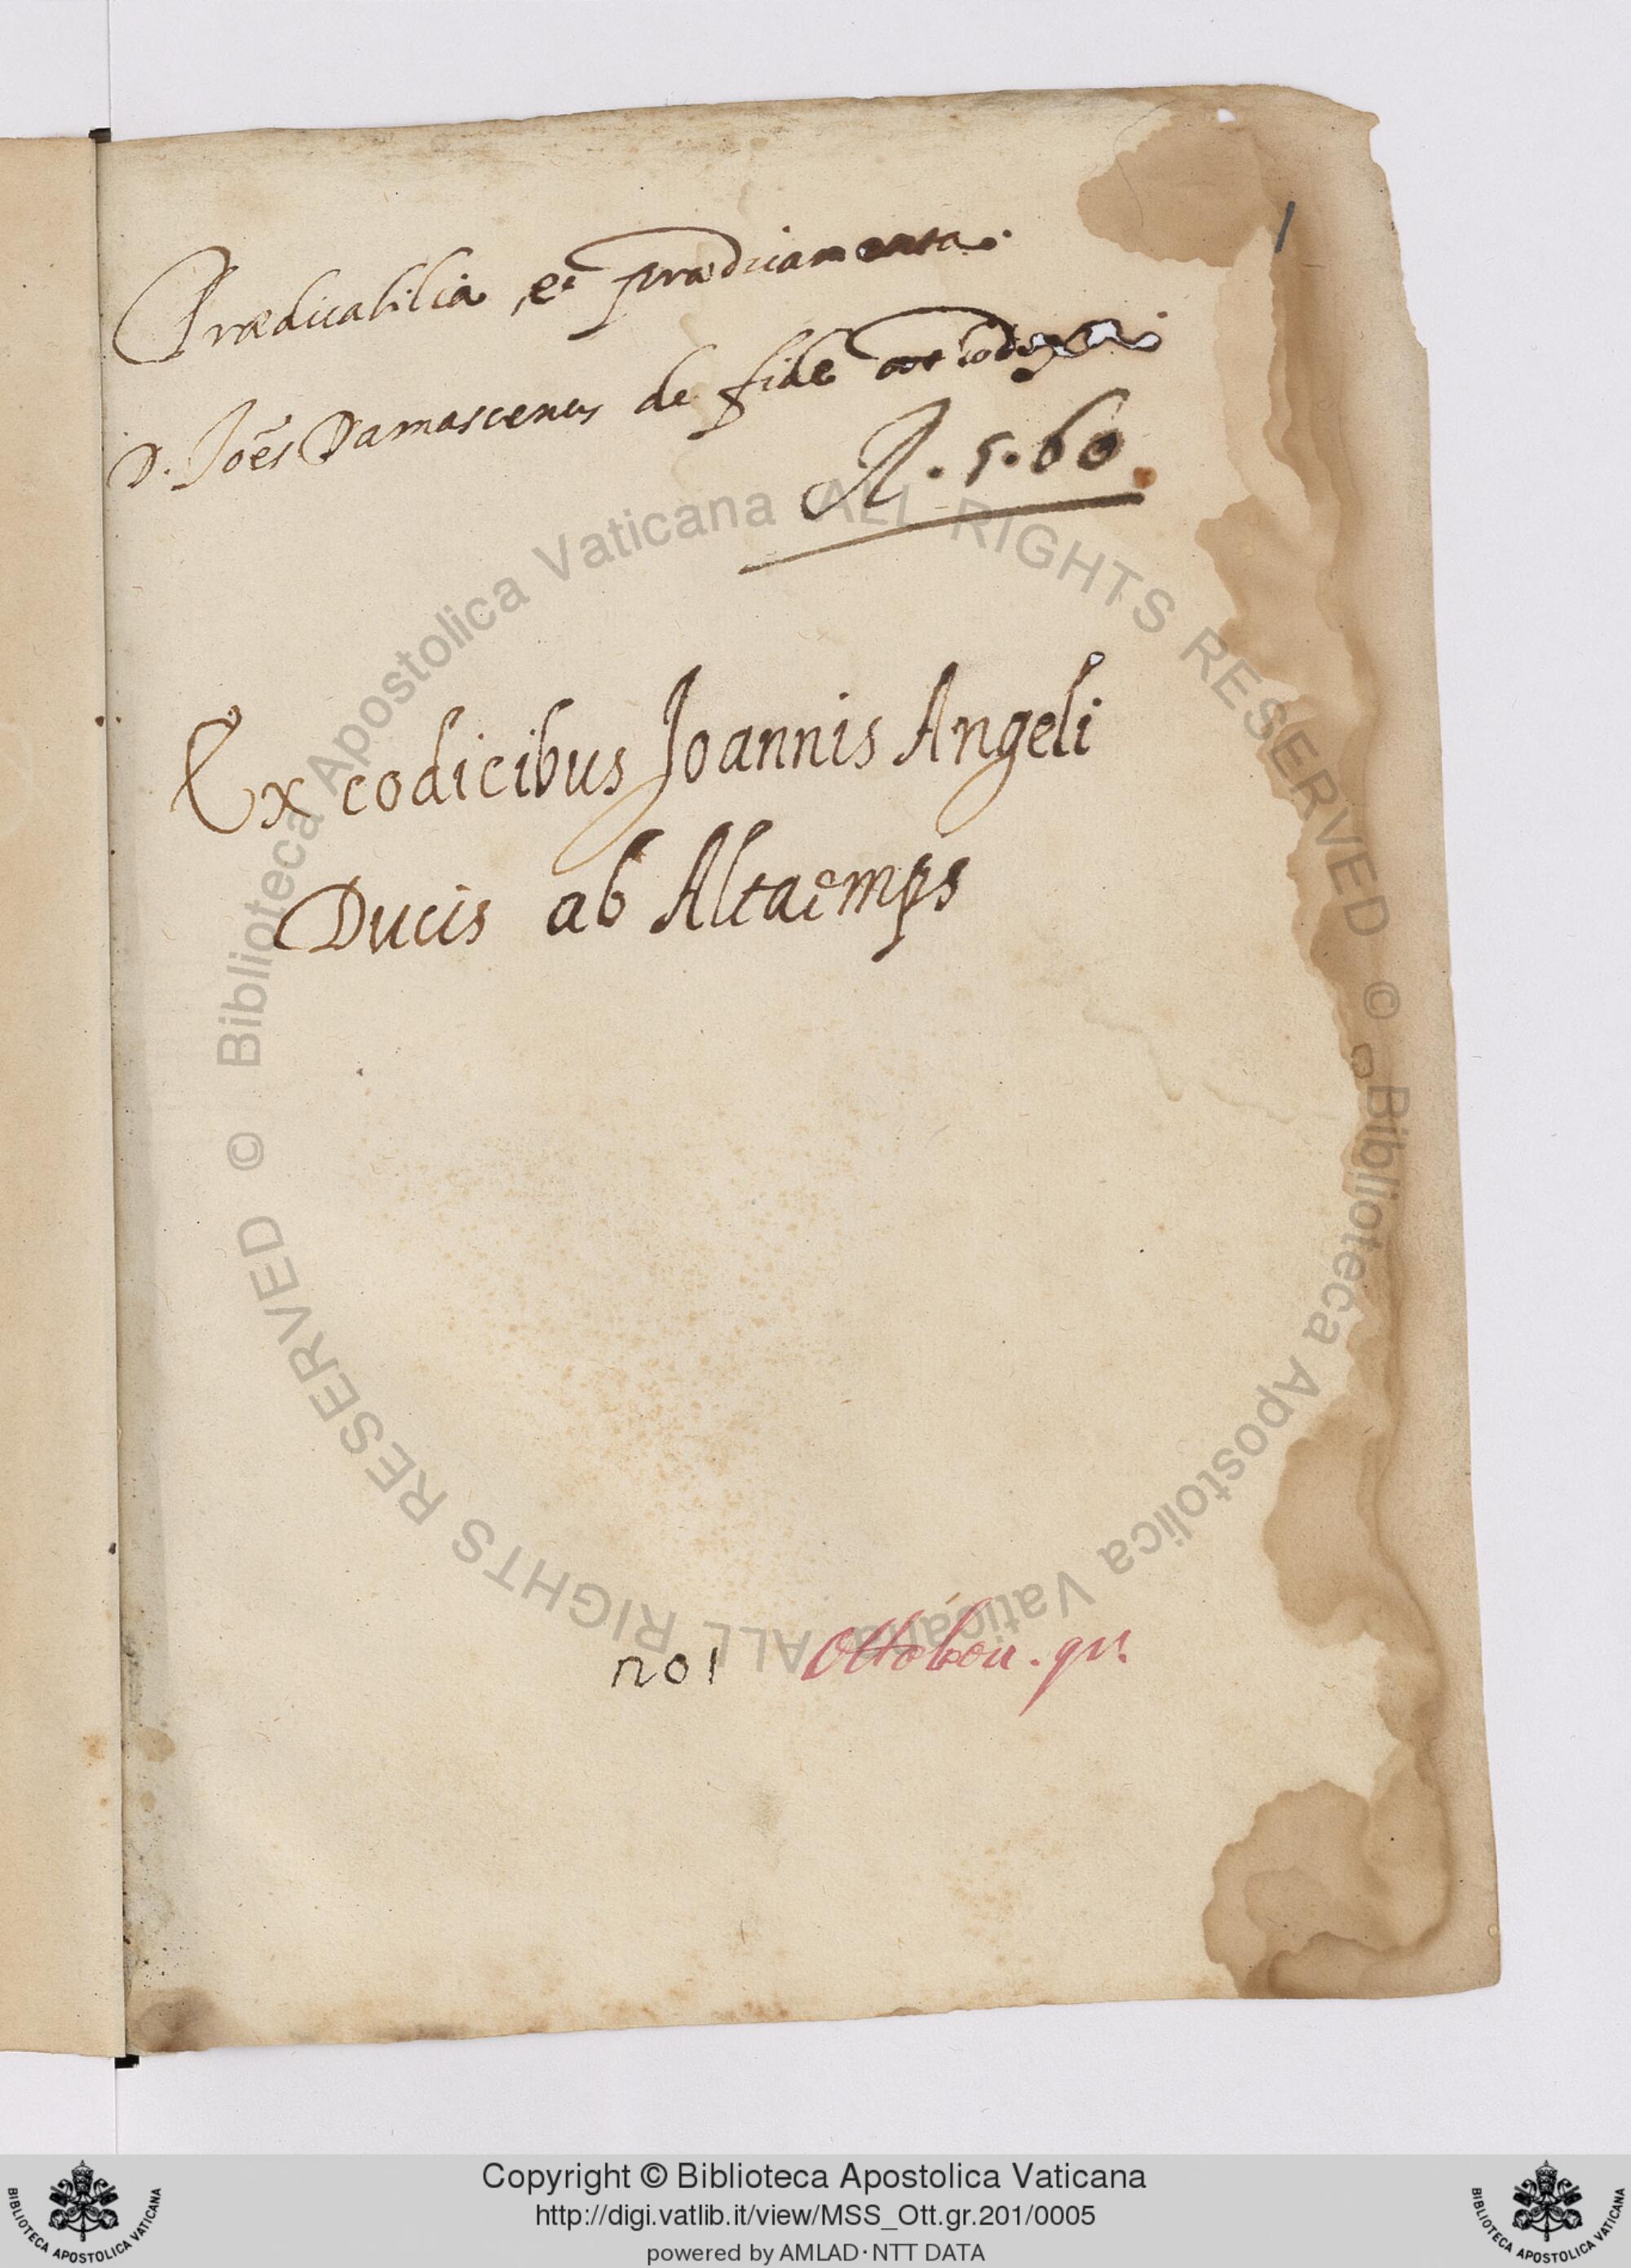 1
Prædicabilia, et prædicamenta.
D. Joẽs Damascenus de fide orthodoxa.
R. 5. 60.
Ex codicibus Joannis Angeli
Ducis ab Altaemps
201 Ottobon. gr.
© Biblioteca Apostolica Vaticana ALL RIGHTS RESERVED
© Biblioteca Apostolica Vaticana ALL RIGHTS RESERVED
Copyright © Biblioteca Apostolica Vaticana
http://digi.vatlib.it/view/MSS_Ott.gr.201/0005
powered by AMLAD·NTT DATA
BIBLIOTECA APOSTOLICA VATICANA
BIBLIOTECA APOSTOLICA VATICANA